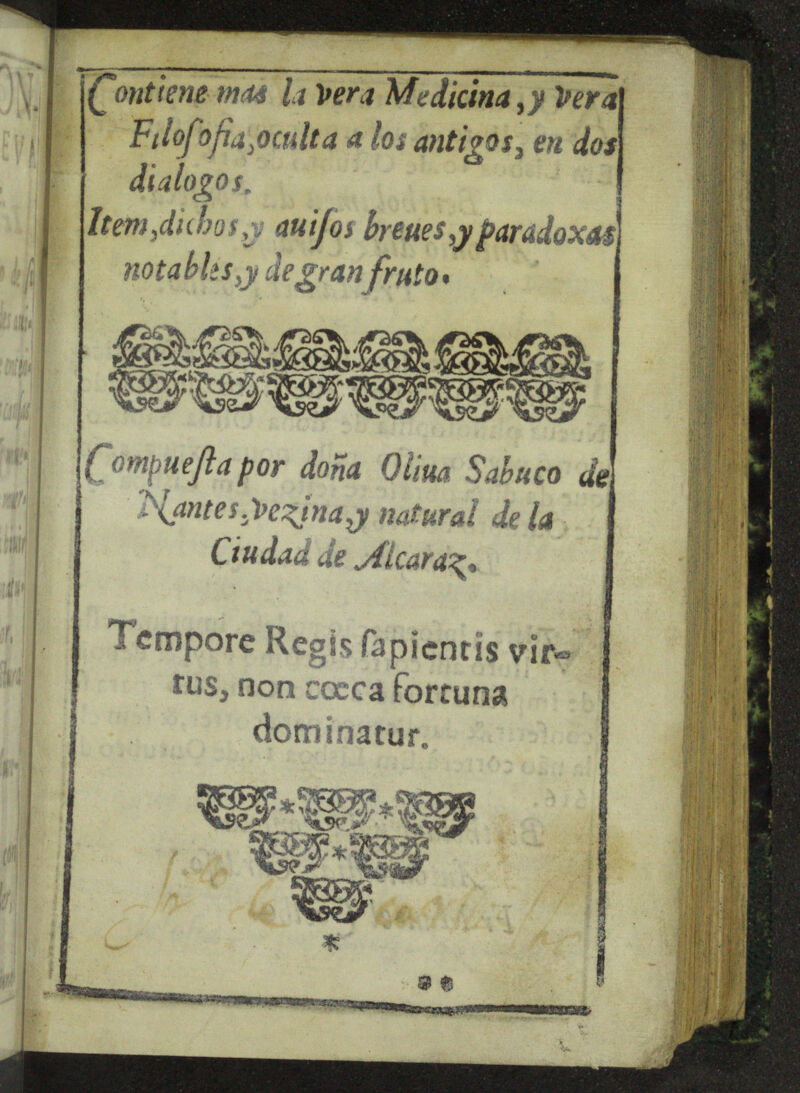 Contiene mas la vera Medicina, y vera
Filosofia, oculta a los antigos, en dos
dialogos.
Item, dichos, y auisos breues, y paradoxas
notables, y de gran fruto.
Compuesta por doña Oliua Sabuco de
Nantes, vezina, y natural de la
Ciudad de Alcaraz.
Tempore Regis sapientis vir-
tus, non cœca fortuna
dominatur.